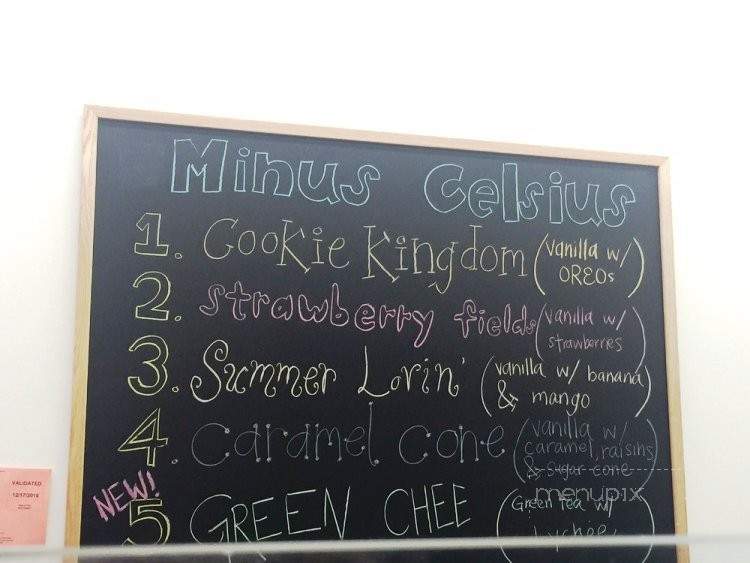 Minus Celsius
1. Cookie Kingdom (vanilla w/ OREOs)
2. strawberry fields (vanilla w/ strawberries)
3. Summer Lovin' (vanilla w/ banana & mango)
4. Caramel Cone (vanilla w/ caramel, raisins & sugar cone)
NEW!
5 GREEN CHEE (Green Tea w/ Lychee)
menupix
VALIDATED